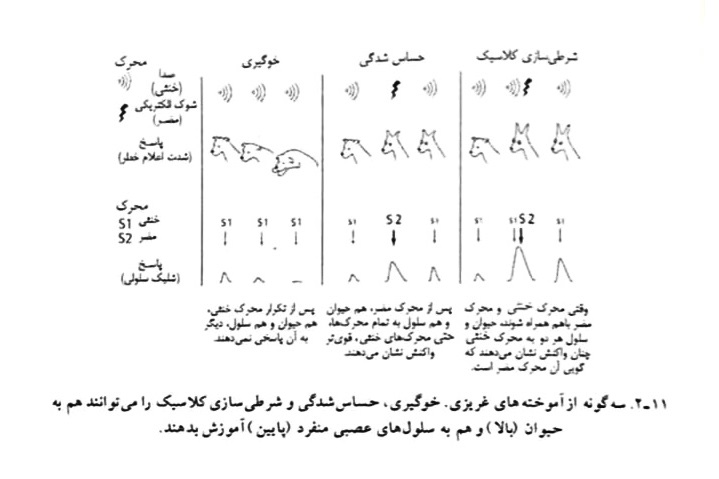 شرطی‌سازی کلاسیک
حساس شدگی
خوگیری
محرک
صدا
(خنثی)
شوک الکتریکی
(مضر)
پاسخ
(شدت اعلام خطر)
محرک
خنثی S1
مضر S2
S1 S1 S1
S1 S2 S1
S1 S1 S2 S1
پاسخ
(شلیک سلولی)
وقتی محرک خنثی و محرک
مضر باهم همراه شوند، حیوان و
سلول هر دو به محرک خنثی
چنان واکنش نشان می‌دهند که
گویی آن محرک مضر است.
پس از محرک مضر، هم حیوان
و هم سلول به تمام محرک‌ها،
حتی محرک‌های خنثی، قوی‌تر
واکنش نشان می‌دهند
پس از تکرار محرک خنثی،
هم حیوان و هم سلول، دیگر
به آن پاسخی نمی‌دهند.
۱۱-۲. سه گونه از آموخته‌های غریزی. خوگیری، حساس شدگی و شرطی‌سازی کلاسیک را می‌توانند هم به
حیوان (بالا) و هم به سلول‌های عصبی منفرد (پایین) آموزش بدهند.